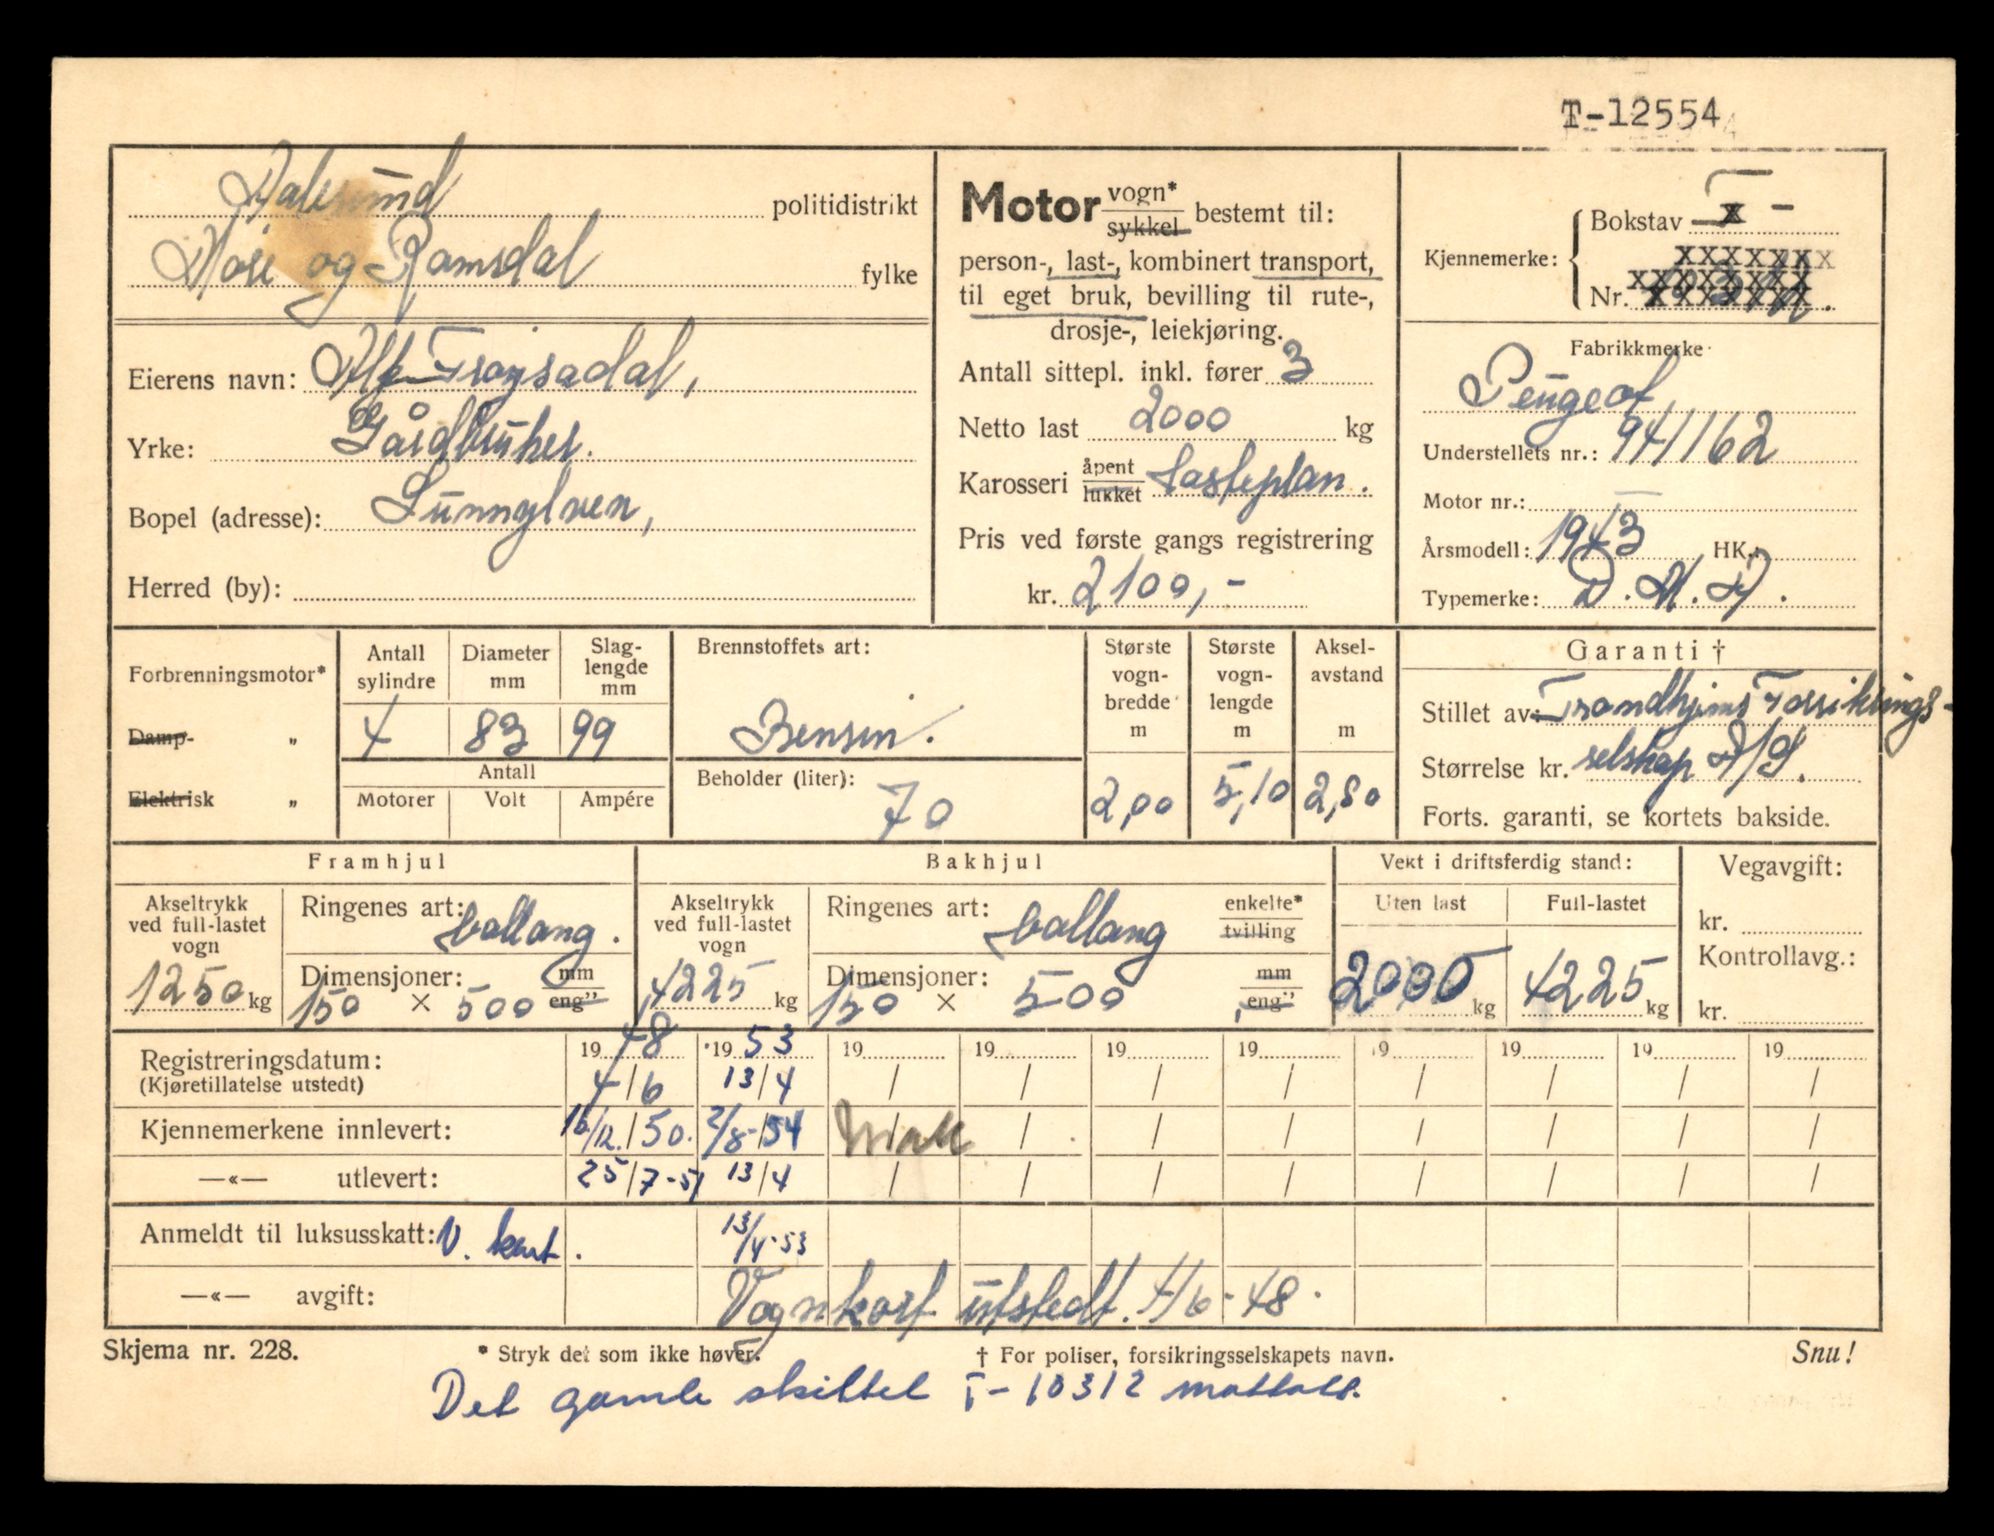 T-12554
Aalesund politidistrikt
Møre og Romsdal fylke
Eierens navn: Alf Frøysadal,
Yrke: Gårdbruker.
Bopel (adresse): Sunnylven,
Herred (by):
Motor vogn* sykkel bestemt til:
person-, last-, kombinert transport,
til eget bruk, bevilling til rute-,
drosje-, leiekjøring.
Antall sittepl. inkl. fører 3
Netto last 2000 kg
Karosseri åpent lukket lasteplan.
Pris ved første gangs registrering
kr. 2100,-
Kjennemerke: Bokstav T-
Nr.
Fabrikkmerke
Peugeot,
Understellets nr.: 941162
Motor nr.: —
Årsmodell: 1943 HK.:
Typemerke: D.M.A.
Forbrenningsmotor*
Damp- „
Elektrisk „
Antall sylindre Diameter mm Slaglengde mm
4 83 99
Antall
Motorer Volt Ampére
Brennstoffets art:
Bensin.
Beholder (liter):
70
Største vognbredde m Største vognlengde m Akselavstand m
2,00 5,10 2,80
Garanti †
Stillet av: Trondhjems Forsikrings-
Størrelse kr. selskap A/S.
Forts. garanti, se kortets bakside.
Framhjul
Akseltrykk ved full-lastet vogn
1250 kg
Ringenes art: ballong.
Dimensjoner: mm eng"
150 × 500
Bakhjul
Akseltrykk ved full-lastet vogn
4225 kg
Ringenes art: ballong enkelte* tvilling
Dimensjoner: mm eng"
150 × 500
Vekt i driftsferdig stand:
Uten last Full-lastet
2000 kg 4225 kg
Vegavgift:
kr.
Kontrollavg.:
kr.
Registreringsdatum: 1948 1953 19 19 19 19 19 19 19 19
(Kjøretillatelse utstedt) 4/6 13/4 / / / / / / / /
Kjennemerkene innlevert: 16/12./50. 2/8-/54 / / / / / / / /
—«— utlevert: 25/7-51 13/4 / / / / / / / /
Anmeldt til luksusskatt: V. kort. 13/4-53
—«— avgift: Vognkort utstedt. 4/6-48.
Skjema nr. 228. * Stryk det som ikke høver. † For poliser, forsikringsselskapets navn. Snu!
Det gamle skiltet T-10312 mottatt.